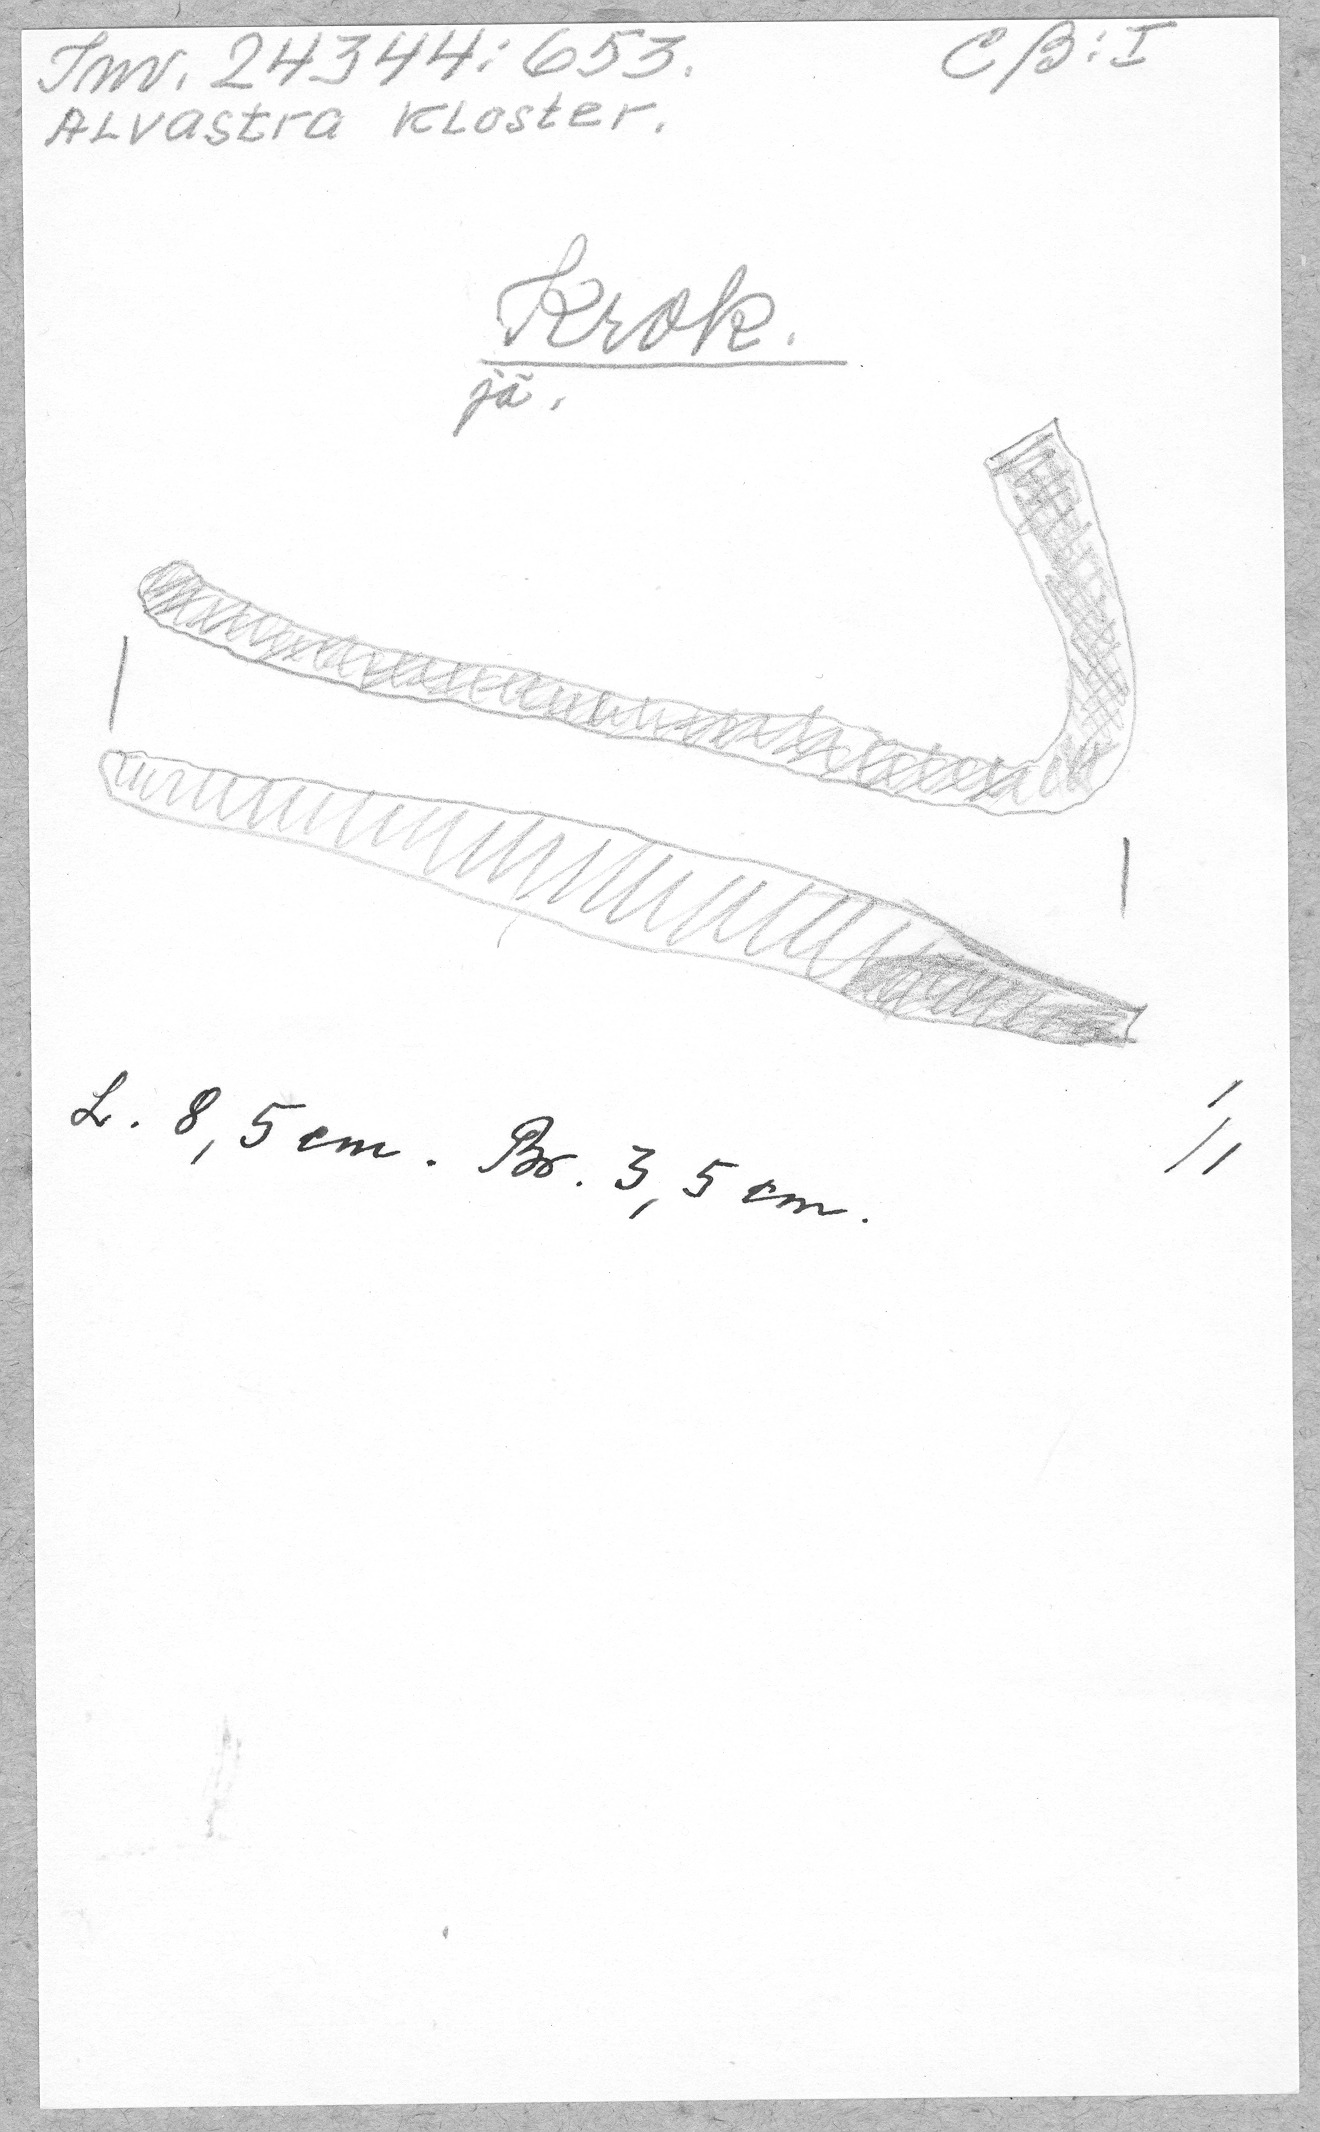 Inv. 24344:653. CB:I
Alvastra Kloster.
Krok.
jä.
L. 8,5 cm. Br. 3,5 cm.
1/1